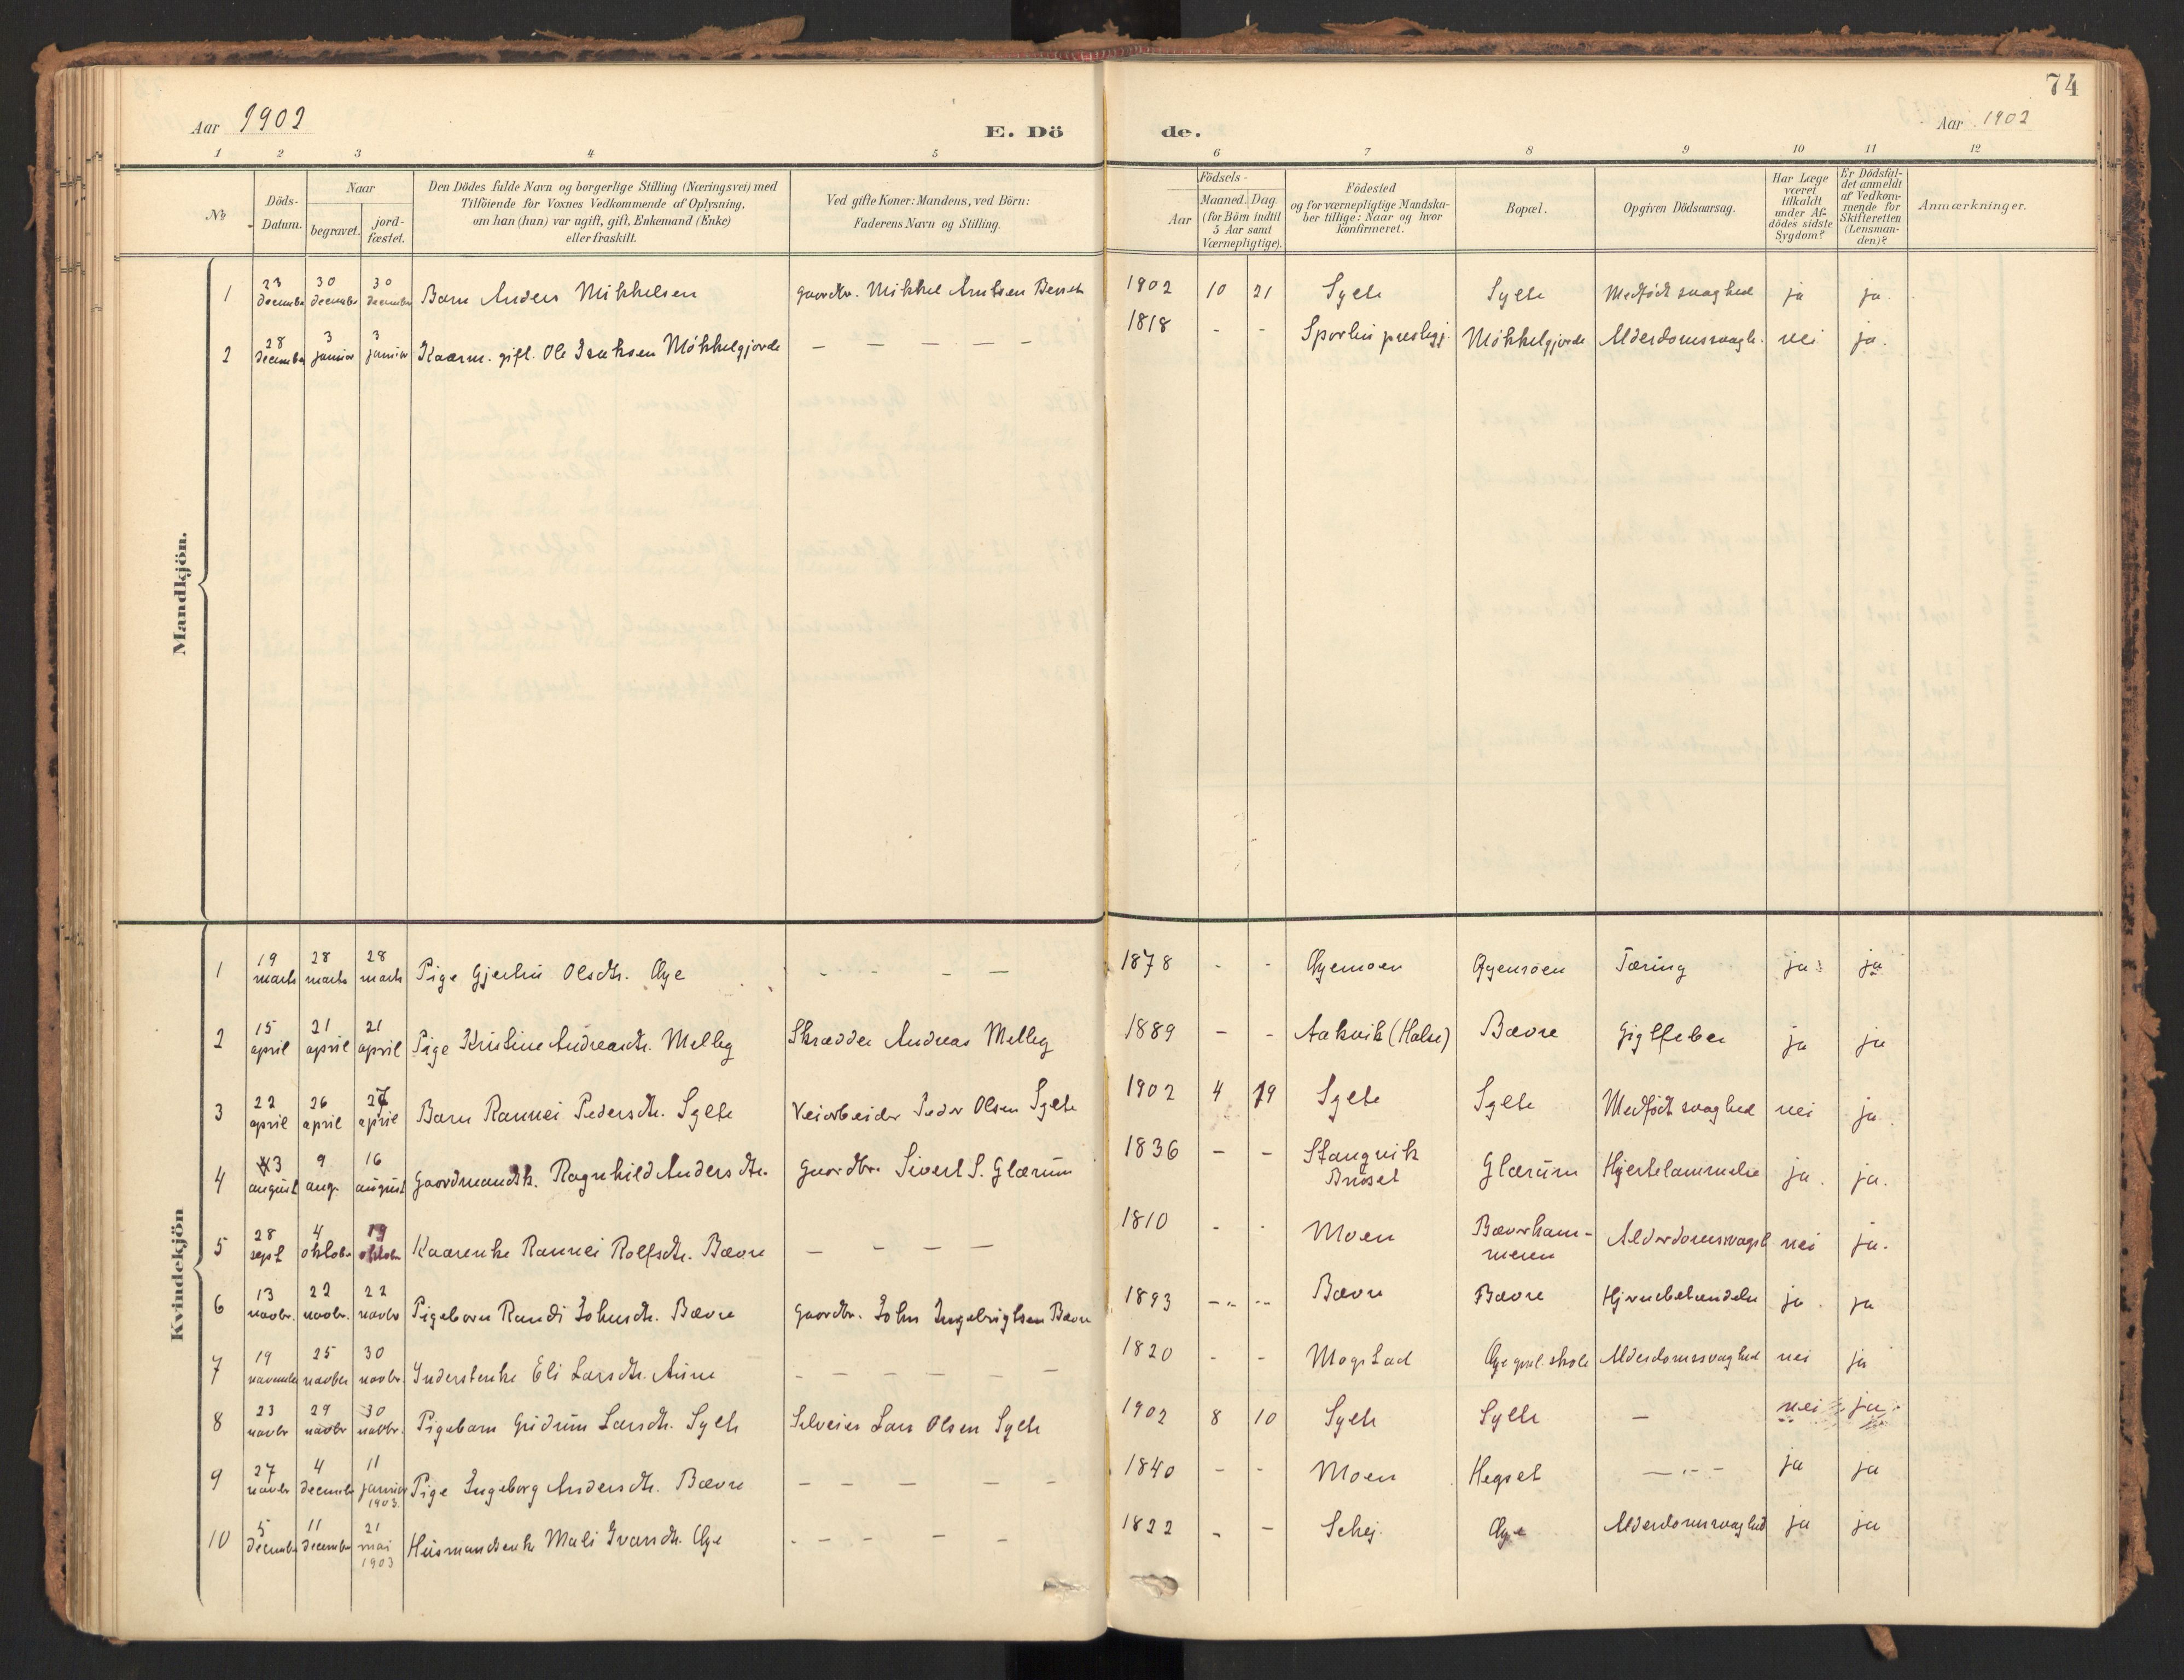 74
Aar 1902 E. Dö de. Aar 1902
1 2 3 4 5 6 7 8 9 10 11 12
No
Döds-Datum.
Naar begravet. jordfæstet.
Den Dödes fulde Navn og borgerlige Stilling (Næringsvei) med
Tilföiende for Voxnes Vedkommende af Oplysning,
om han (hun) var ugift, gift, Enkemand (Enke)
eller fraskilt.
Ved gifte Koner: Mandens, ved Börn:
Faderens Navn og Stilling.
Födsels-
Aar Maaned. Dag
(for Börn indtil
5 Aar samt
Værnepligtige).
Födested
og for værnepligtige Mandskaber tillige: Naar og hvor
konfirmeret.
Bopæl.
Opgiven Dödsaarsag.
Har Læge
været
tilkaldt
under Afdödes sidste
Sygdom?
Er Dödsfaldet anmeldt
af Vedkommende for
Skifteretten
(Lensmanden)?
Anmærkninger.
Mandkjön.
1 23 december 30 december 30 december Barn Anders Mikkelsen gaardbr. Mikkel Arntsen 1902 10 21 Sylte Sylte Medfødt svaghed ja ja.
2 28 december 3 januar 3 januar Kaarm. gift. Ole Isaksen Mökkelgjerde — — — — — 1818 - - Mökkelgjerde Alderdomssvagh. nei ja.
Kvindekjön
1 19 marts 28 marts 28 marts Pige Gjertru Olsdtr. Øye - - - — 1878 - - Øyemoen Øyemoen Tæring ja ja
2 15 april 21 april 21 april Pige Kristine Andreasdtr. Melby Skrædder Andreas Melby 1889 - - Aakvik (Halse) Bævre Gigtfeber ja ja
3 22 april 26 april 27 april Barn Rannei Pedersdtr. Sylte Veiarbeider Peder Olsen Sylte 1902 4 19 Sylte Sylte Medfødt svaghed nei ja.
4 3 august 9 aug. 16 august Gaardmandsk. Ragnhild Andersdtr. Gaardbr. Sivert S. Glærum 1836 - - Stangvik
Brøset Glærum Hjertelammelse ja. ja.
5 28 sept 4 oktober 19 oktober Kaarenke Rannei Rolfsdtr. Bævre — - - — 1810 - - Moen Bæverham-
meren Alderdomssvagh nei ja.
6 13 novbr. 22 novbr. 22 novbr Pigebarn Randi Johnsdtr. Bævre gaardbr. John Ingebrigtsen Bævre 1893 -"- -"- Bævre Bævre ja. ja
7 19 november 25 novber 30 novbr. Inderstenke Eli Larsdtr. Aune - — — — — — 1820 - - Mogstad Alderdomssvaghed nei ja
8 23 novbr 29 novbr 30 novbr. Pigebarn Gudrun Larsdtr. Sylte Selveier Lars Olsen Sylte 1902 8 10 Sylte Sylte — nei ja
9 27 novbr 4 december 11 januar 1903. Pige Ingeborg Andersdtr. Bævre — — — — - 1840 - - Moen Hegset —"— ja ja
10 5 december 11 december 21 mai 1903 Husmandsenke Mali Ivarsdtr. Øye - - - — - 1822 - - Schej. Øye Alderdomssvaghed ja ja